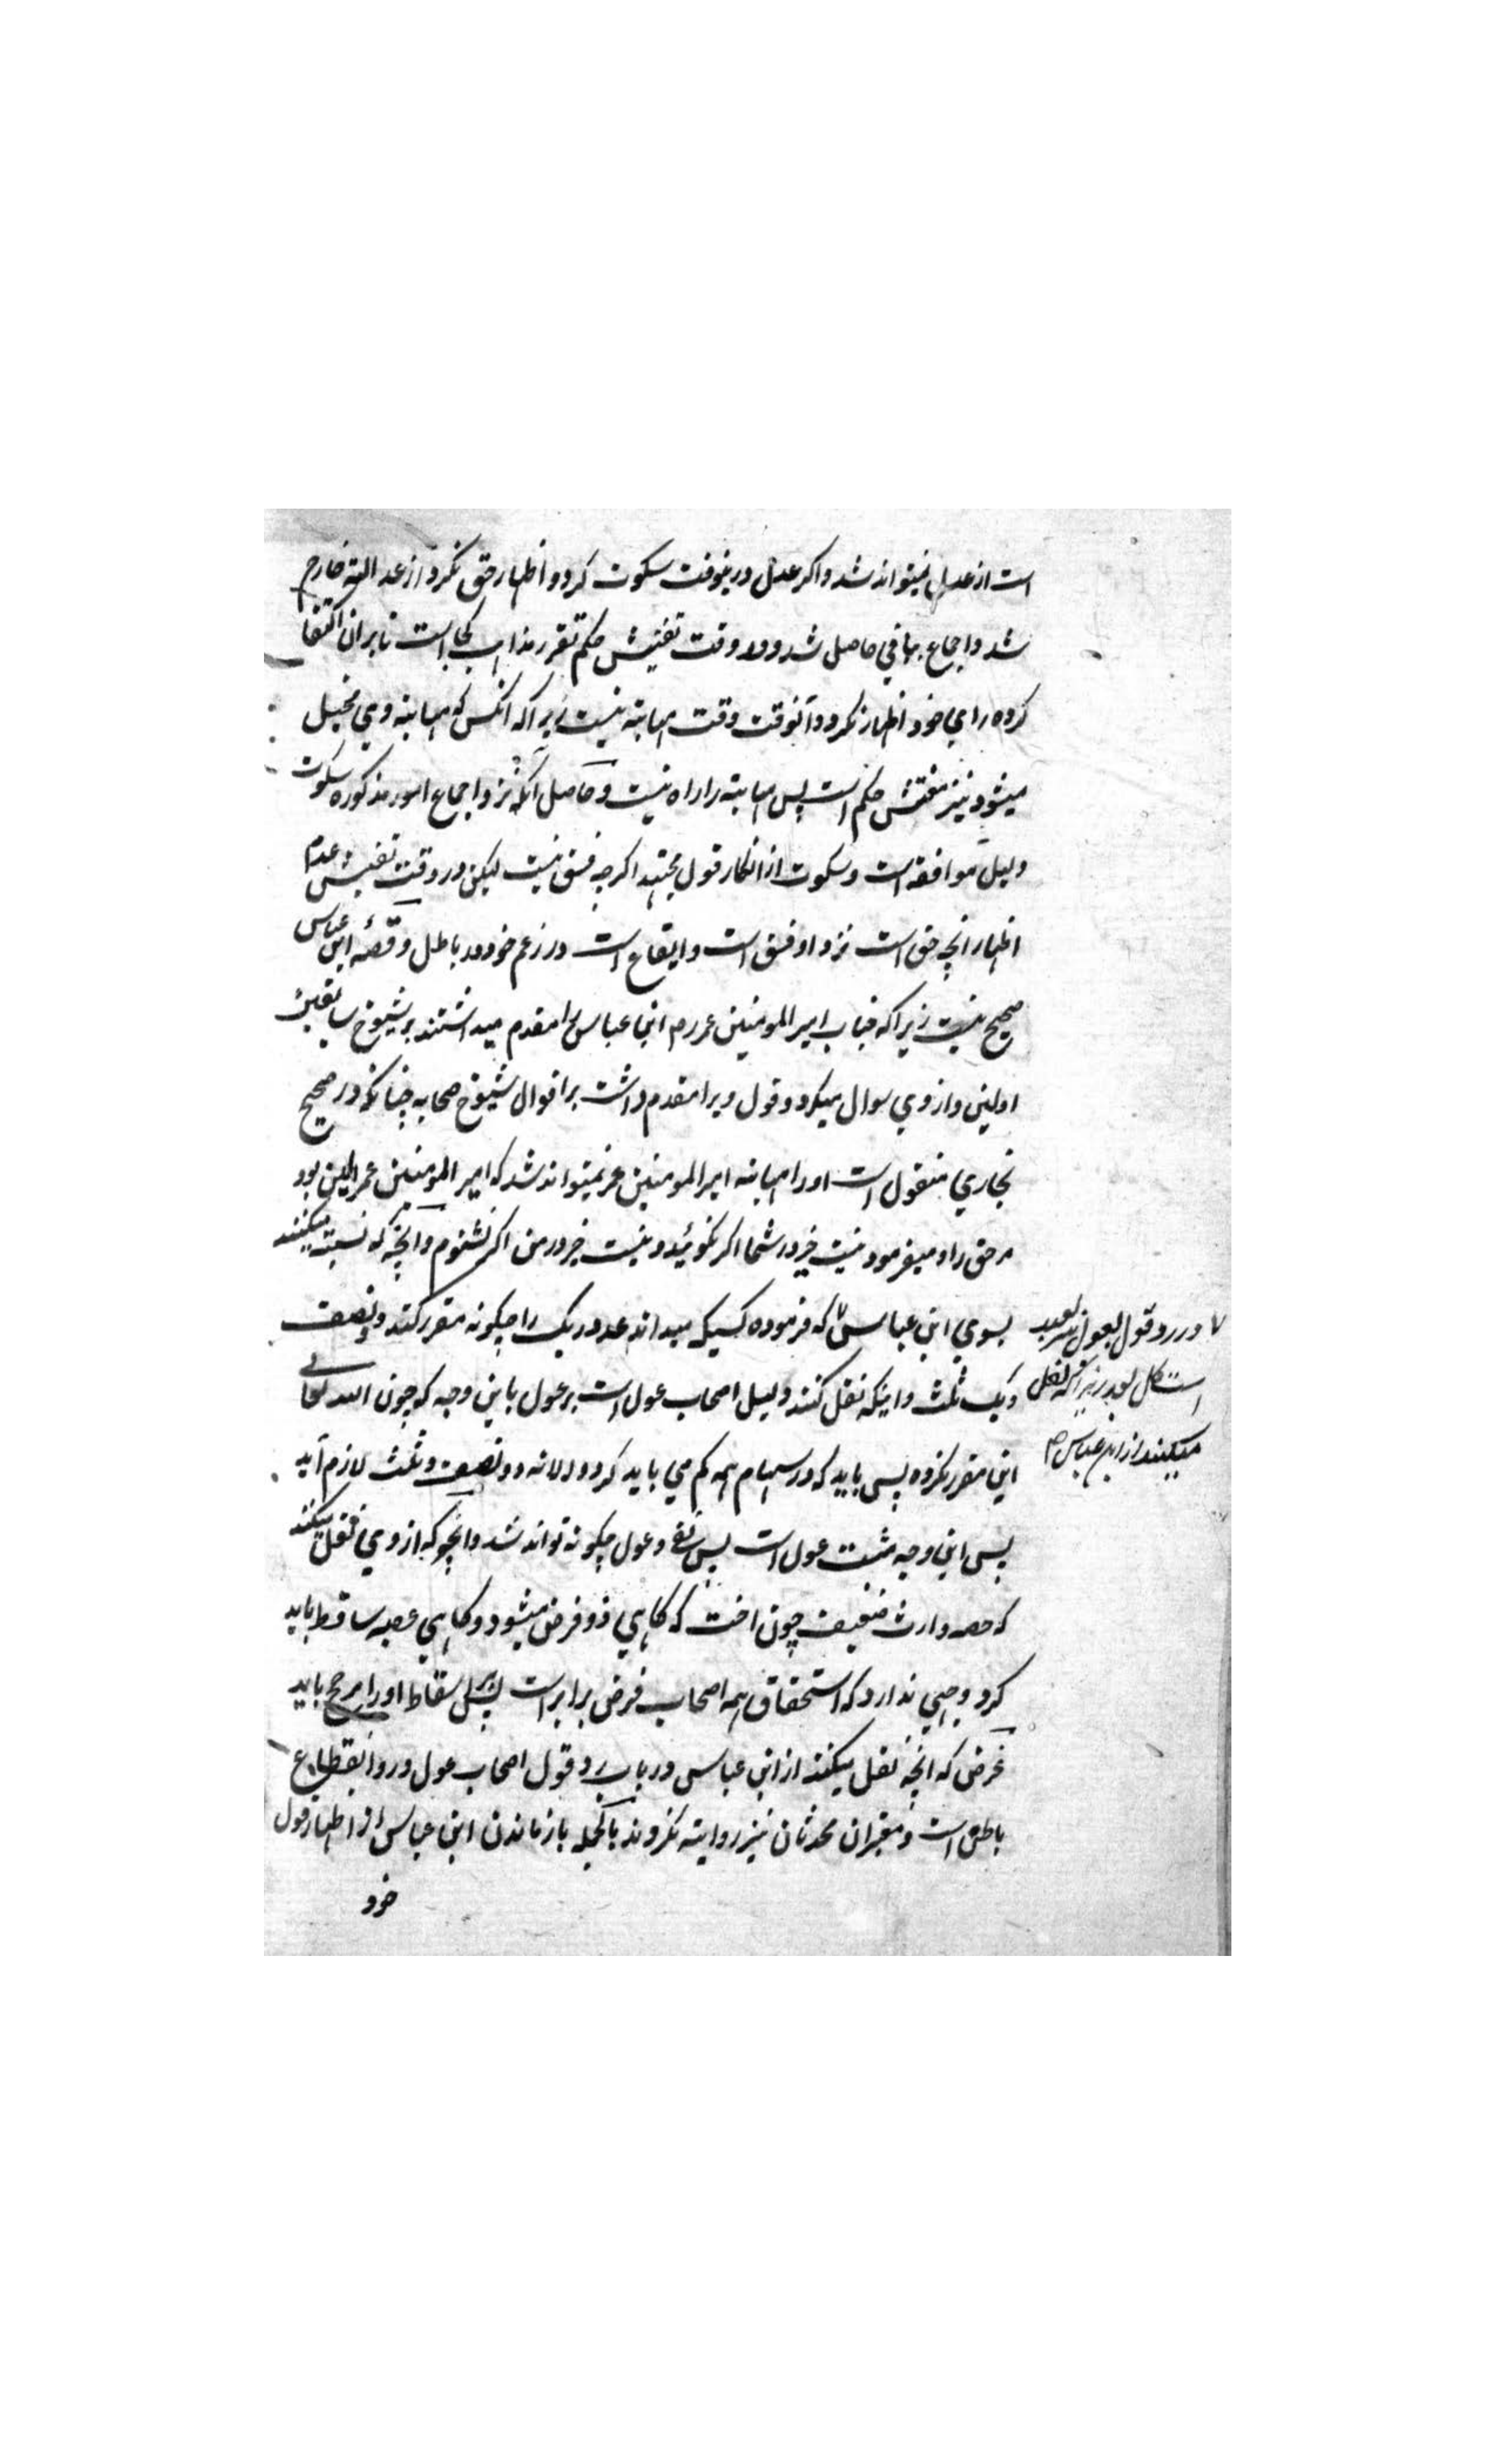 است از عدل نمیتواند شد و اگر عدل درینوقت سکوت کرد و اظهار حق نکرد از عدالته خارج
شد و اجماع بهافی حاصل شد و در وقت تفتیش حکم تقرر مذاهب کجا است تا بر ان اکتفا
کرده رای خود اظهار نکرد و آنوقت وقت مهابته نیست زیرا که انکس که مهابته وی مخیل
میشود نیز مفتش حکم است پس مهابته را راه نیست و حاصل آنکه نزد اجماع امور مذکوره سکوت
دلیل موافقه است و سکوت از انکار قول مجتهد اگرچه فسق نیست لیکن در وقت تفتیش عدم
اظهار انچه حق است نزد او فسق است و ایقاع است در زعم خود در باطل و قصه ابن عباس
صحیح نیست زیرا که جناب امیر المومنین عمر رم ابن عباس را مقدم میداشتند بر شیوخ سابقین
اولین و از وی سوال میکرد و قول ویرا مقدم داشت بر اقوال شیوخ صحابه چنانکه در صحیح
بخاری منقول است او را مهابته امیر المومنین عمر نمیتواند شد که امیر المومنین عمر الین بود
مر حق را و میفرمود نیست خیر در شما اگر نگوئید و نیست خیر در من اگر نشنوم و آنچه که نسبت میکنند
بسوی ابن عباس که فرموده کسیکه میداند عدد ریگ را چگونه مقرر کند دو نصف
و یک ثلث و اینکه نقل کنند دلیل اصحاب عول است بر عول باین وجه که چون الله تعالی
این مقرر نکرده پس باید که در سهام همه کم می باید کرد و الا نه دو نصف و ثلث لازم آید
پس این وجه مثبت عول است پس رد عول چگونه تواند شد و انچه که از وی نقل میکنند
که حصه وارث ضعیف چون اخت که گاهی ذو فرض میشود و گاهی عصبه ساقط باید
کرد وجهی ندارد که استحقاق همه اصحاب فرض برابر است پس برای اسقاط او را مرجح باید
غرض که انچه نقل میکنند از ابن عباس در باب رد قول اصحاب عول در وا نقطاع
باطن است و معتبران محدثان نیز روایته نکردند بالجمله باز ماندن ابن عباس از اظهار قول
خود
در رد قول بعول بعید
است کل بعد زیرا که نقل
میکنند از ابن عباس